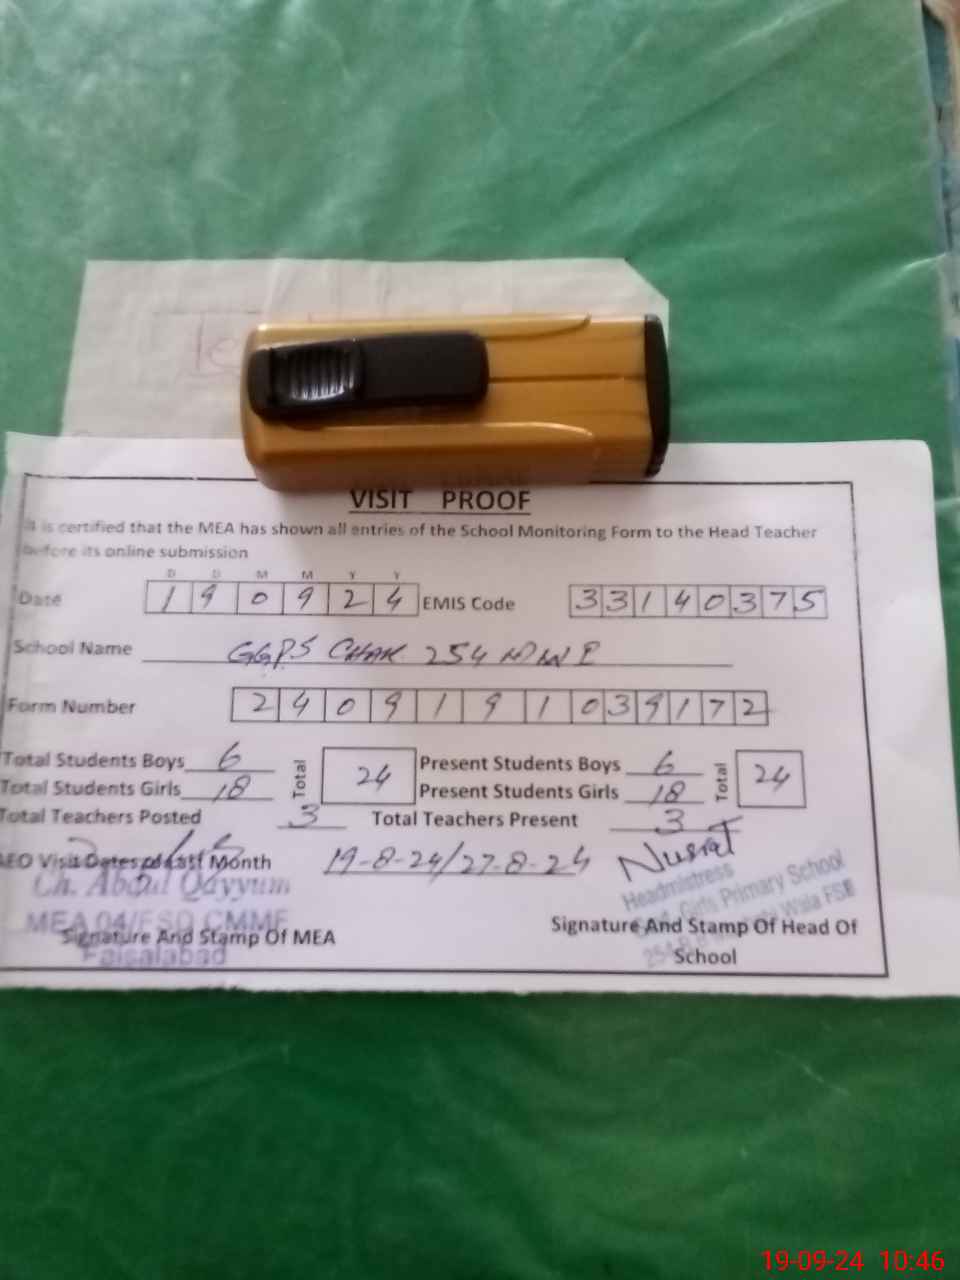 VISIT PROOF
It is certified that the MEA has shown all entries of the School Monitoring Form to the Head Teacher
before its online submission
D D M M Y Y
Date 1 9 0 9 2 4 EMIS Code 3 3 1 4 0 3 7 5
School Name GGPS CHAK 254
Form Number 2 4 0 9 1 9 1 0 3 9 1 7 2
Total Students Boys 6 Total 24 Present Students Boys 6 Total 24
Total Students Girls 18 Present Students Girls 18
Total Teachers Posted 3 Total Teachers Present 3
AEO Visit Dates of Last Month 19-8-24/27-8-24 Nusrat
Ch. Abdul Qayyum
MEA 04/FSD CMMF
Faisalabad
Signature And Stamp Of MEA
Headmistress
Govt. Girls Primary School
Wala FSE
Signature And Stamp Of Head Of
School
19-09-24 10:46